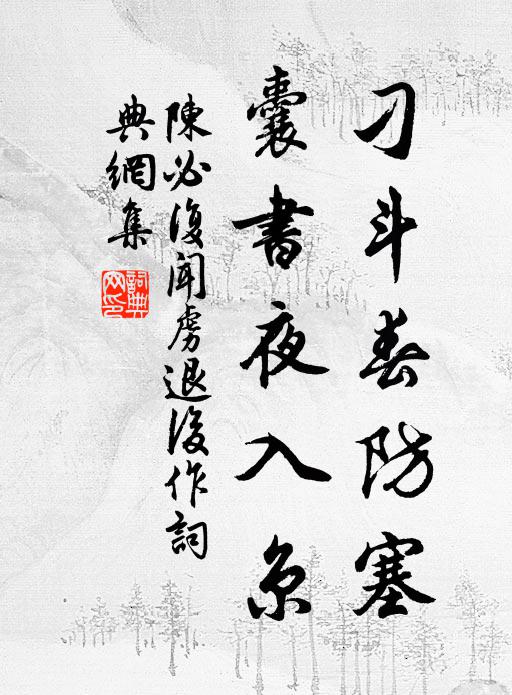 刁斗春防塞
囊書夜入京
陳必復聞虜退後作詞
典網集
詞典網印